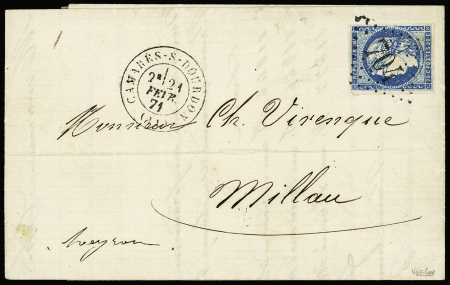 CAMARÈS-S-DOURDON
2E 21
FEVR.
71
(11)
704
Monsieur Ch. Virenque
Millau
Aveyron